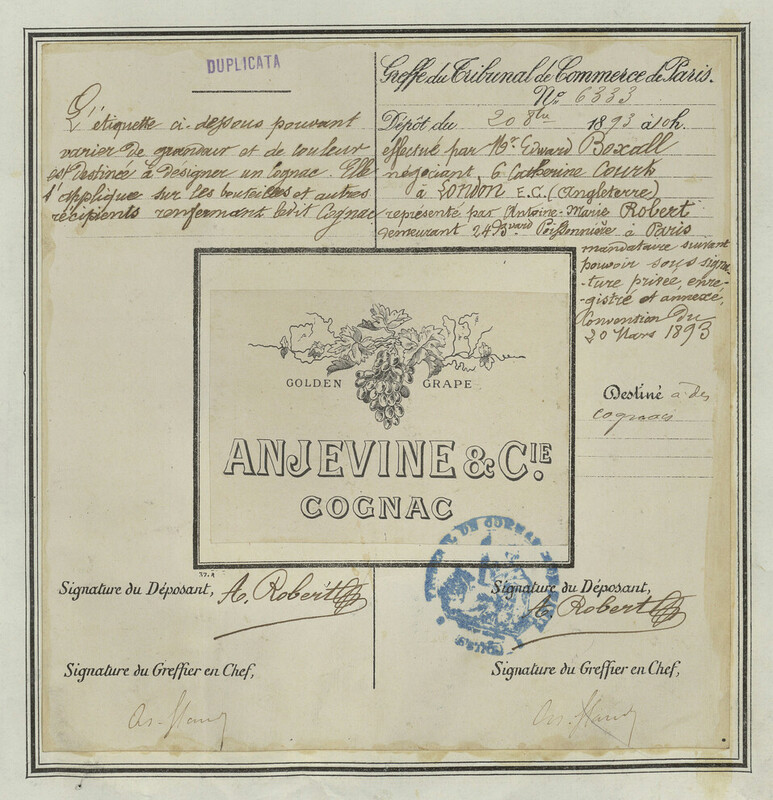 DUPLICATA
L'étiquette ci-dessous pouvant
varier de grandeur et de couleur
est destinée à désigner un Cognac. Elle
s'applique sur les bouteilles et autres
récipients renfermant ledit Cognac
Greffe du Tribunal de Commerce de Paris.
No. 6333
Dépôt du 20 8bre 1893 à 10h.
effectué par Mr. Edward Boxall
négociant 6 Catherine Court
à LONDON E.C. (Angleterre)
représenté par Antoine-Marie Robert
demeurant 24 Bvard Poissonnière à Paris
mandataire suivant
pouvoir sous signa-
ture privée, enre-
gistré et annexé,
Convention du
20 Mars 1893
Destiné à des
cognacs
GOLDEN GRAPE
ANJEVINE & CIE.
COGNAC
Signature du Déposant, A. Robert
Signature du Déposant,
A. Robert
Signature du Greffier en Chef,
Signature du Greffier en Chef,